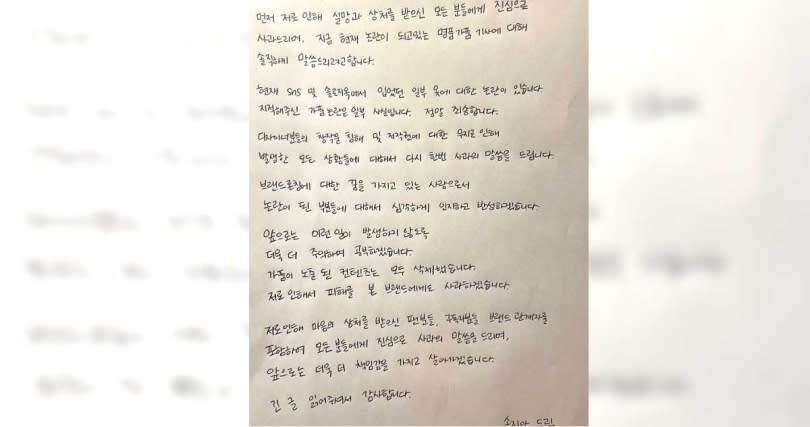 먼저 저로 인해 실망과 상처를 받으신 모든 분들에게 진심으로
사과드리며, 지금 현재 논란이 되고있는 명품가품 기사에 대해
솔직하게 말씀드리려고합니다.
현재 SNS 및 솔로지옥에서 입었던 일부 옷에 대한 논란이 있습니다
지적해주신 가품논란은 일부 사실입니다. 정말 죄송합니다.
디자이너분들의 창작물 침해 및 저작권에 대한 무지로 인해
발생한 모든 상황들에 대해서 다시 한번 사과의 말씀을 드립니다.
브랜드론칭에 대한 꿈을 가지고 있는 사람으로서
논란이 된 부분들에 대해서 심각하게 인지하고 반성하겠습니다.
앞으로는 이런 일이 발생하지 않도록
더욱 더 주의하며 공부하겠습니다.
가품이 노출 된 컨텐츠는 모두 삭제했습니다.
저로 인해서 피해를 본 브랜드에게도 사과하겠습니다.
저로인해 마음의 상처를 받으신 팬분들, 구독자분들 브랜드 관계자를
포함하여 모든 분들에게 진심으로 사과의 말씀을 드리며,
앞으로는 더욱 더 책임감을 가지고 살아가겠습니다.
긴 글 읽어주셔서 감사합니다.
송지아 드림